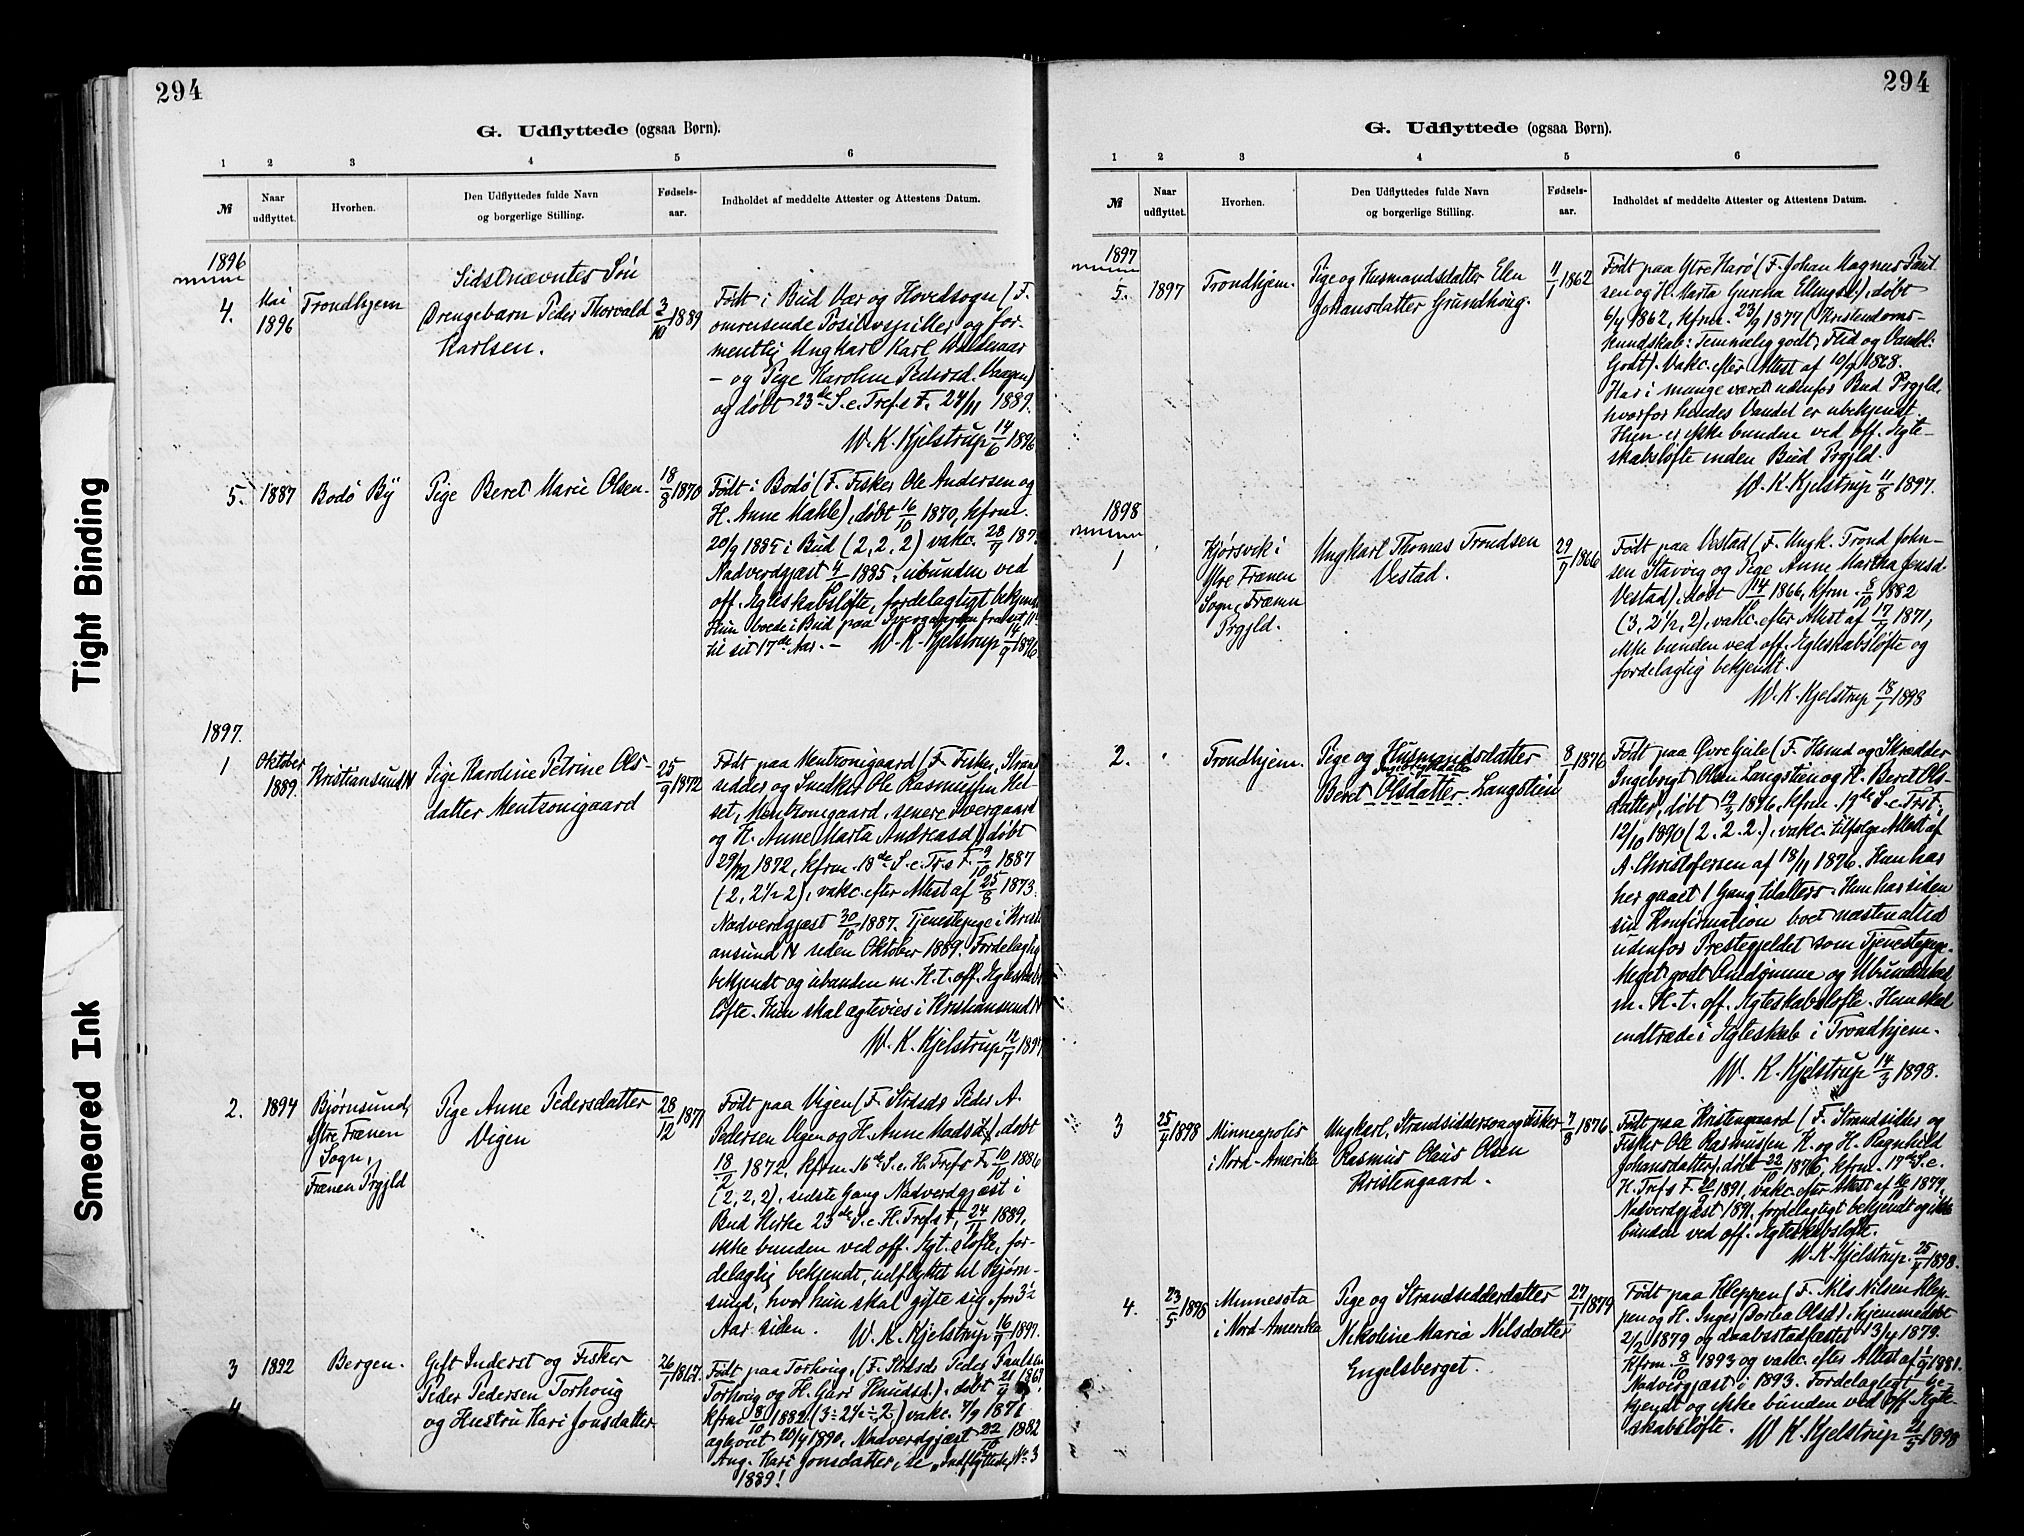 294
G. Udflyttede (ogsaa Børn).
1 2 3 4 5 6
№ Naar udflyttet. Hvorhen. Den Udflyttedes fulde Navn og borgerlige Stilling. Fødsels-aar. Indholdet af meddelte Attester og Attestens Datum.
1896
4. Mai 1896 Trondhjem
Sidstnævntes Søn
Drengebarn Peder Thorvald
Karlsen.
3/10 1889
Født i Bud Vær og Hovedsogn (F.
omreisende Positivspiller og for-
mentlig Ungkarl Karl
– og Pige Karoline Pedersd. Vaagen)
og døbt 23de S. e. Tref. F. 24/11 1889.
W. K. Kjelstrup 14/6 1896
5. 1887 Bodö By Pige Beret Marie Olsen. 18/8 1870
Født i Bodö (F. Fisker Ole Andersen og
H. Anne Mahle), døbt 16/10 1870, kfrm.
20/9 1885 i Bud (2, 2, 2) vakc. 28/7
Nadverdgjæst 4/10 1885, ubunden ved
off. Ægteskabsløfte, fordelagtigt bekjendt
Hun boede i Bud paa
til sit 17de Aar. – W. K. Kjelstrup 14/9 1896
1897.
1 Oktober 1889. Kristiansund N
Pige Karoline Petrine Ols-
datter Mentzonigaard
25/9 1872
Født paa Mentzonigaard (F. Fisker, Strand
sidder og Snedker Ole Rasmussen Hel-
set, Mentzonigaard, senere Overgaard
og H. Anne Marta Andreasd.), døbt
29/12 1872, kfrm. 18de S. e. Tr. F. 9/10 1887
(2, 2½, 2), vakc. efter Attest af 25/8 1873.
Nadverdgjæst 30/10 1887. Tjenestepige i Kristi
ansund N siden Oktober 1889. Fordelagtig
bekjendt og ubunden m. H. t. off. Ægteskabs
løfte. Hun skal ægtevies i Kristiansund N
W. K. Kjelstrup 12/7 1897
2. 1894 Bjørnsund,
Ytre Frænen
Sogn,
Frænen Prgjld
Pige Anne Pedersdatter
Vigen
28/12 1871
Født paa Vigen (F. Strdsdr Peder A.
Pedersen Vigen og H. Anne Madsd.), døbt
18/2 1872, kfrm. 16de S. e. H. Tref. F. 10/10 1886
(2, 2, 2), sidste Gang Nadverdgjæst i
Bud Kirke 23de S. e. H. Tref. F. 24/11 1889,
ikke bunden ved off. Ægt.sløfte, for-
delagtig bekjendt, udflyttet til Bjørn-
sund, hvor hun skal gifte sig, for 3½
Aar siden. W. K. Kjelstrup 16/9 1897.
3 1892 Bergen.
Gift Inderst og Fisker
Peder Pedersen Torhoug
og Hustru Kari Jonsdatter
26/1
Født paa Torhoug, (F. Strdsdr Peder Paulsen
Torhoug og H. Guri Knudsd.), døbt 21/
kfrm. 8/10 1882. (3÷ 2½÷ 2) vakc. 7/9 1871
20/4 1890, Nadverdgjæst 22/10 1882
Ang. Kari Jonsdatter, se „Indflyttede", No. 3
1889!
4
294
G. Udflyttede (ogsaa Børn).
1 2 3 4 5 6
№ Naar udflyttet. Hvorhen. Den Udflyttedes fulde Navn og borgerlige Stilling. Fødsels-aar. Indholdet af meddelte Attester og Attestens Datum.
1897
5. 1897 Trondhjem.
Pige og Husmandsdatter Elen
Johansdatter Grundhoug.
11/1 1862
Født paa Ytre Harø (F. Johan Magnus Paul
sen og H. Marta Gurina Ellingsd.), døbt
6/4 1862, kfrm. 23/9 1877 (Kristendoms-
kundskab: Temmelig godt, Flid og Vandel:
Godt). Vakc. efter Attest af 10/9 1868.
Har i mange været udenfor Bud Prgjld.
hvorfor hendes Vandel er ubekjendt.
Hun er ikke bunden ved off. Ægte-
skabsløfte inden Bud Prgjld.
W. K. Kjelstrup 11/8 1897.
1898
1
Kjørsvik i
Ytre Frænen
Sogn, Frænen
Prgjld.
Ungkarl Thomas Trondsen
Vestad.
29/7 1866
Født paa Vestad (F. Ungk. Trond John-
sen Stavig og Pige Anne Martha Jensd.
Vestad), døbt 14/ 1866, kfrm. 8/10 1882
(3, 2½, 2), vakc. efter Attest af 17/7 1871,
ikke bunden ved off. Ægteskabsløfte og
fordelagtig bekjendt.
W. K. Kjelstrup 18/1 1898
2. Trondhjem.
Pige og Husmandsdatter
Ingebrigtsdatter
Beret Olsdatter Langstien
8/1 1876
Født paa Øvre Gule (F. Hsmd og Skrædder
Ingebrigt Olsen Langstien og H. Beret Ols-
datter), døbt 19/3 1876, kfrm. 19de S. e. Tr. F.
12/10 1890 (2. 2. 2.), vakc. tilfølge Attest af
A. Christofersen af 18/11 1876. Hun har
her gaaet 1 Gang tilalters. Hun har siden
sin Konfirmation boet næsten altid
udenfor Prestegjeldet som Tjenestepige.
Meget godt Omdømme og Ubundenhed
m. H. t. off. Ægteskabsløfte. Hun skal
indtræde i Ægteskab i Trondhjem.
W. K. Kjelstrup 14/3 1898.
3 25/4 1898 Minneapolis
i Nord-Amerika
Ungkarl, Strandsiddersøn og Fisker
Rasmus Olaus Olsen
Kristengaard.
7/8 1876
Født paa Kristengaard (F. Strandsidder og
Fisker Ole Rasmussen K. og H. Ragnhild
Johansdatter), døbt 22/10 1876, kfrm. 17de S. e.
H. Tref. F. 20/9 1891, vakc. efter Attest af 16/10 1879,
Nadverdgjæst 1891, fordelagtigt bekjendt og ikke
bunden ved off. Ægteskabsløfte.
W. K. Kjelstrup. 25/4 1898.
4. 23/5 1898 Minnesota
i Nord-Amerika
Pige og Strandsidderdatter
Nikoline Maria Nilsdatter
Engelsberget.
27/1 1879
Født paa Kleppen (F. Nils Nilsen Klep-
pen og H. Inger Dortea Olsd.), hjemmedøbt
2/2 1879 og daabsstadfæstet 13/4 1879.
Kfrm. 8/10 1893 og vakc. efter Attest af 1/9 1881.
Nadvergjæst i 1893. Fordelagtigt be-
kjendt og ikke bunden ved off. Ægte-
skabsløfte. W. K. Kjelstrup 21/5 1898
Tight Binding
Smeared Ink